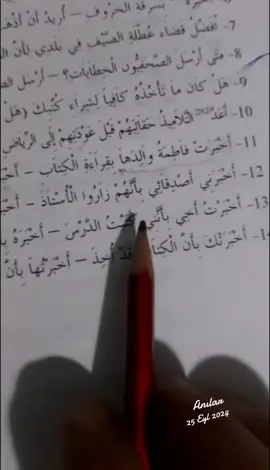 بِسَرِقَةِ الْخَرُوفِ – أُرِيدُ أَنْ
7- أُفَضِّلُ قَضَاءَ عُطْلَةِ الصَّيْفِ فِي بَلَدِي لِأَنَّ
8- مَتَى أَرْسَلَ الصَّحَفِيُّونَ الْخِطَابَاتِ؟ – أَرْسَلَ
9- هَلْ كَانَ مَا تَأْخُذُهُ كَافِيًا لِشِرَاءِ كُتُبِكَ (هَلْ
10- أَعَدَّ التَّلَامِيذُ حَقَائِبَهُمْ قَبْلَ عَوْدَتِهِمْ إِلَى الرِّيَاضِ
11- أَخْبَرَتْ فَاطِمَةُ وَالِدَهَا بِقِرَاءَةِ الْكِتَابِ –
12- أَخْبَرَنِي أَصْدِقَائِي بِأَنَّهُمْ زَارُوا الْأُسْتَاذَ –
13- أَخْبَرْتُ أَخِي بِأَنَّنِي الدَّرْسَ – أَخْبَرَهُ
أَخْبَرَتْكَ بِأَنَّ قَدْ أُخِذَ – أَخْبَرْتُهَا بِأَنَّ
Anılar
25 Eyl 2024